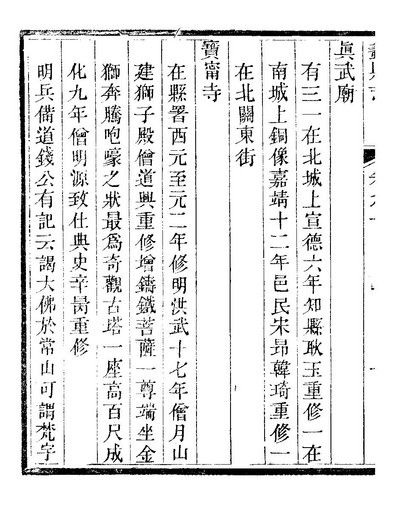 眞武廟
有三一在北城上宣德六年知縣耿玉重修一在
南城上銅像嘉靖十二年邑民宋昻韓琦重修一
在北關東街
寶甯寺
在縣署西元至元二年修明洪武十七年僧月山
建獅子殿僧道興重修增鑄鐵菩薩一尊端坐金
獅奔騰咆嚎之狀最爲奇觀古塔一座高百尺成
化九年僧明源致仕典史辛暠重修
明兵備道錢公有記云謁大佛於常山可謂梵宇